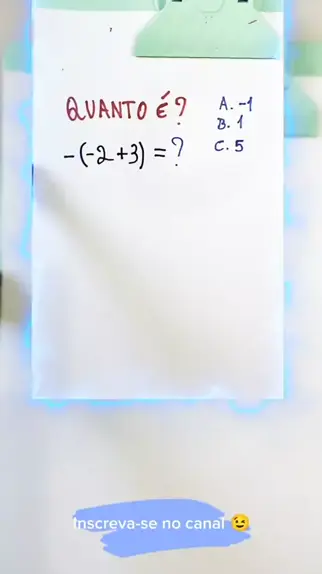 QUANTO É?
-(-2+3) = ?
A. -1
B. 1
C. 5
Inscreva-se no canal 😉